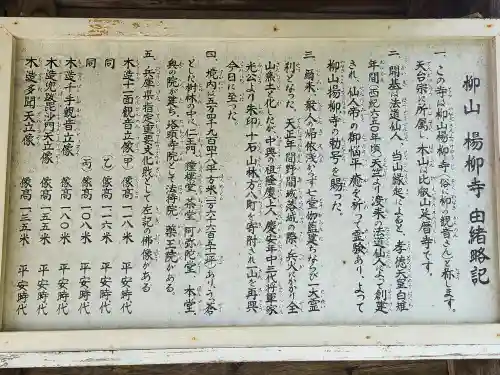 柳山 楊柳寺 由緒略記
一、この寺は柳山楊柳寺(俗に柳の観音さん)と称します。
天台宗に所属し、本山は比叡山延暦寺です。
二、開基は法道仙人、当山縁起によると、孝徳天皇白雉
年間(西紀六五〇年頃)天竺より渡来の法道仙人によって創建
され、仙人帝の御悩平癒を祈って霊験あり、よって
柳山楊柳寺の勅号を賜った。
三、爾来、衆人の帰依浅からず、七堂伽藍建ちならぶ一大霊
刹となった。天正年間野間城落城の際、兵火にかかり全
山焦土と化したが中興の祖隆慶上人、慶安年中三代将軍家
光公より朱印十石、山林方八町を寄附され山を再興
今日に至った。
四、境内は五万四千九百四十八平方米(一万六千六百五十二坪)あり、うっ蒼
とした樹林の中に仁王門、鐘楼堂、茶堂、阿弥陀堂、本堂、
奥の院が建ち、塔頭寺院として法待院、薬王院がある。
五、兵庫県指定重要文化財として左記の佛像がある
木造十一面観音立像(甲) 像高一一八米 平安時代
同 (乙) 像高一一六米 平安時代
同 (丙) 像高一〇八米 平安時代
木造千手観音立像 像高一八〇米 平安時代
木造兜跋毘沙門天立像 像高一五五米 平安時代
木造多聞天立像 像高一三五米 平安時代